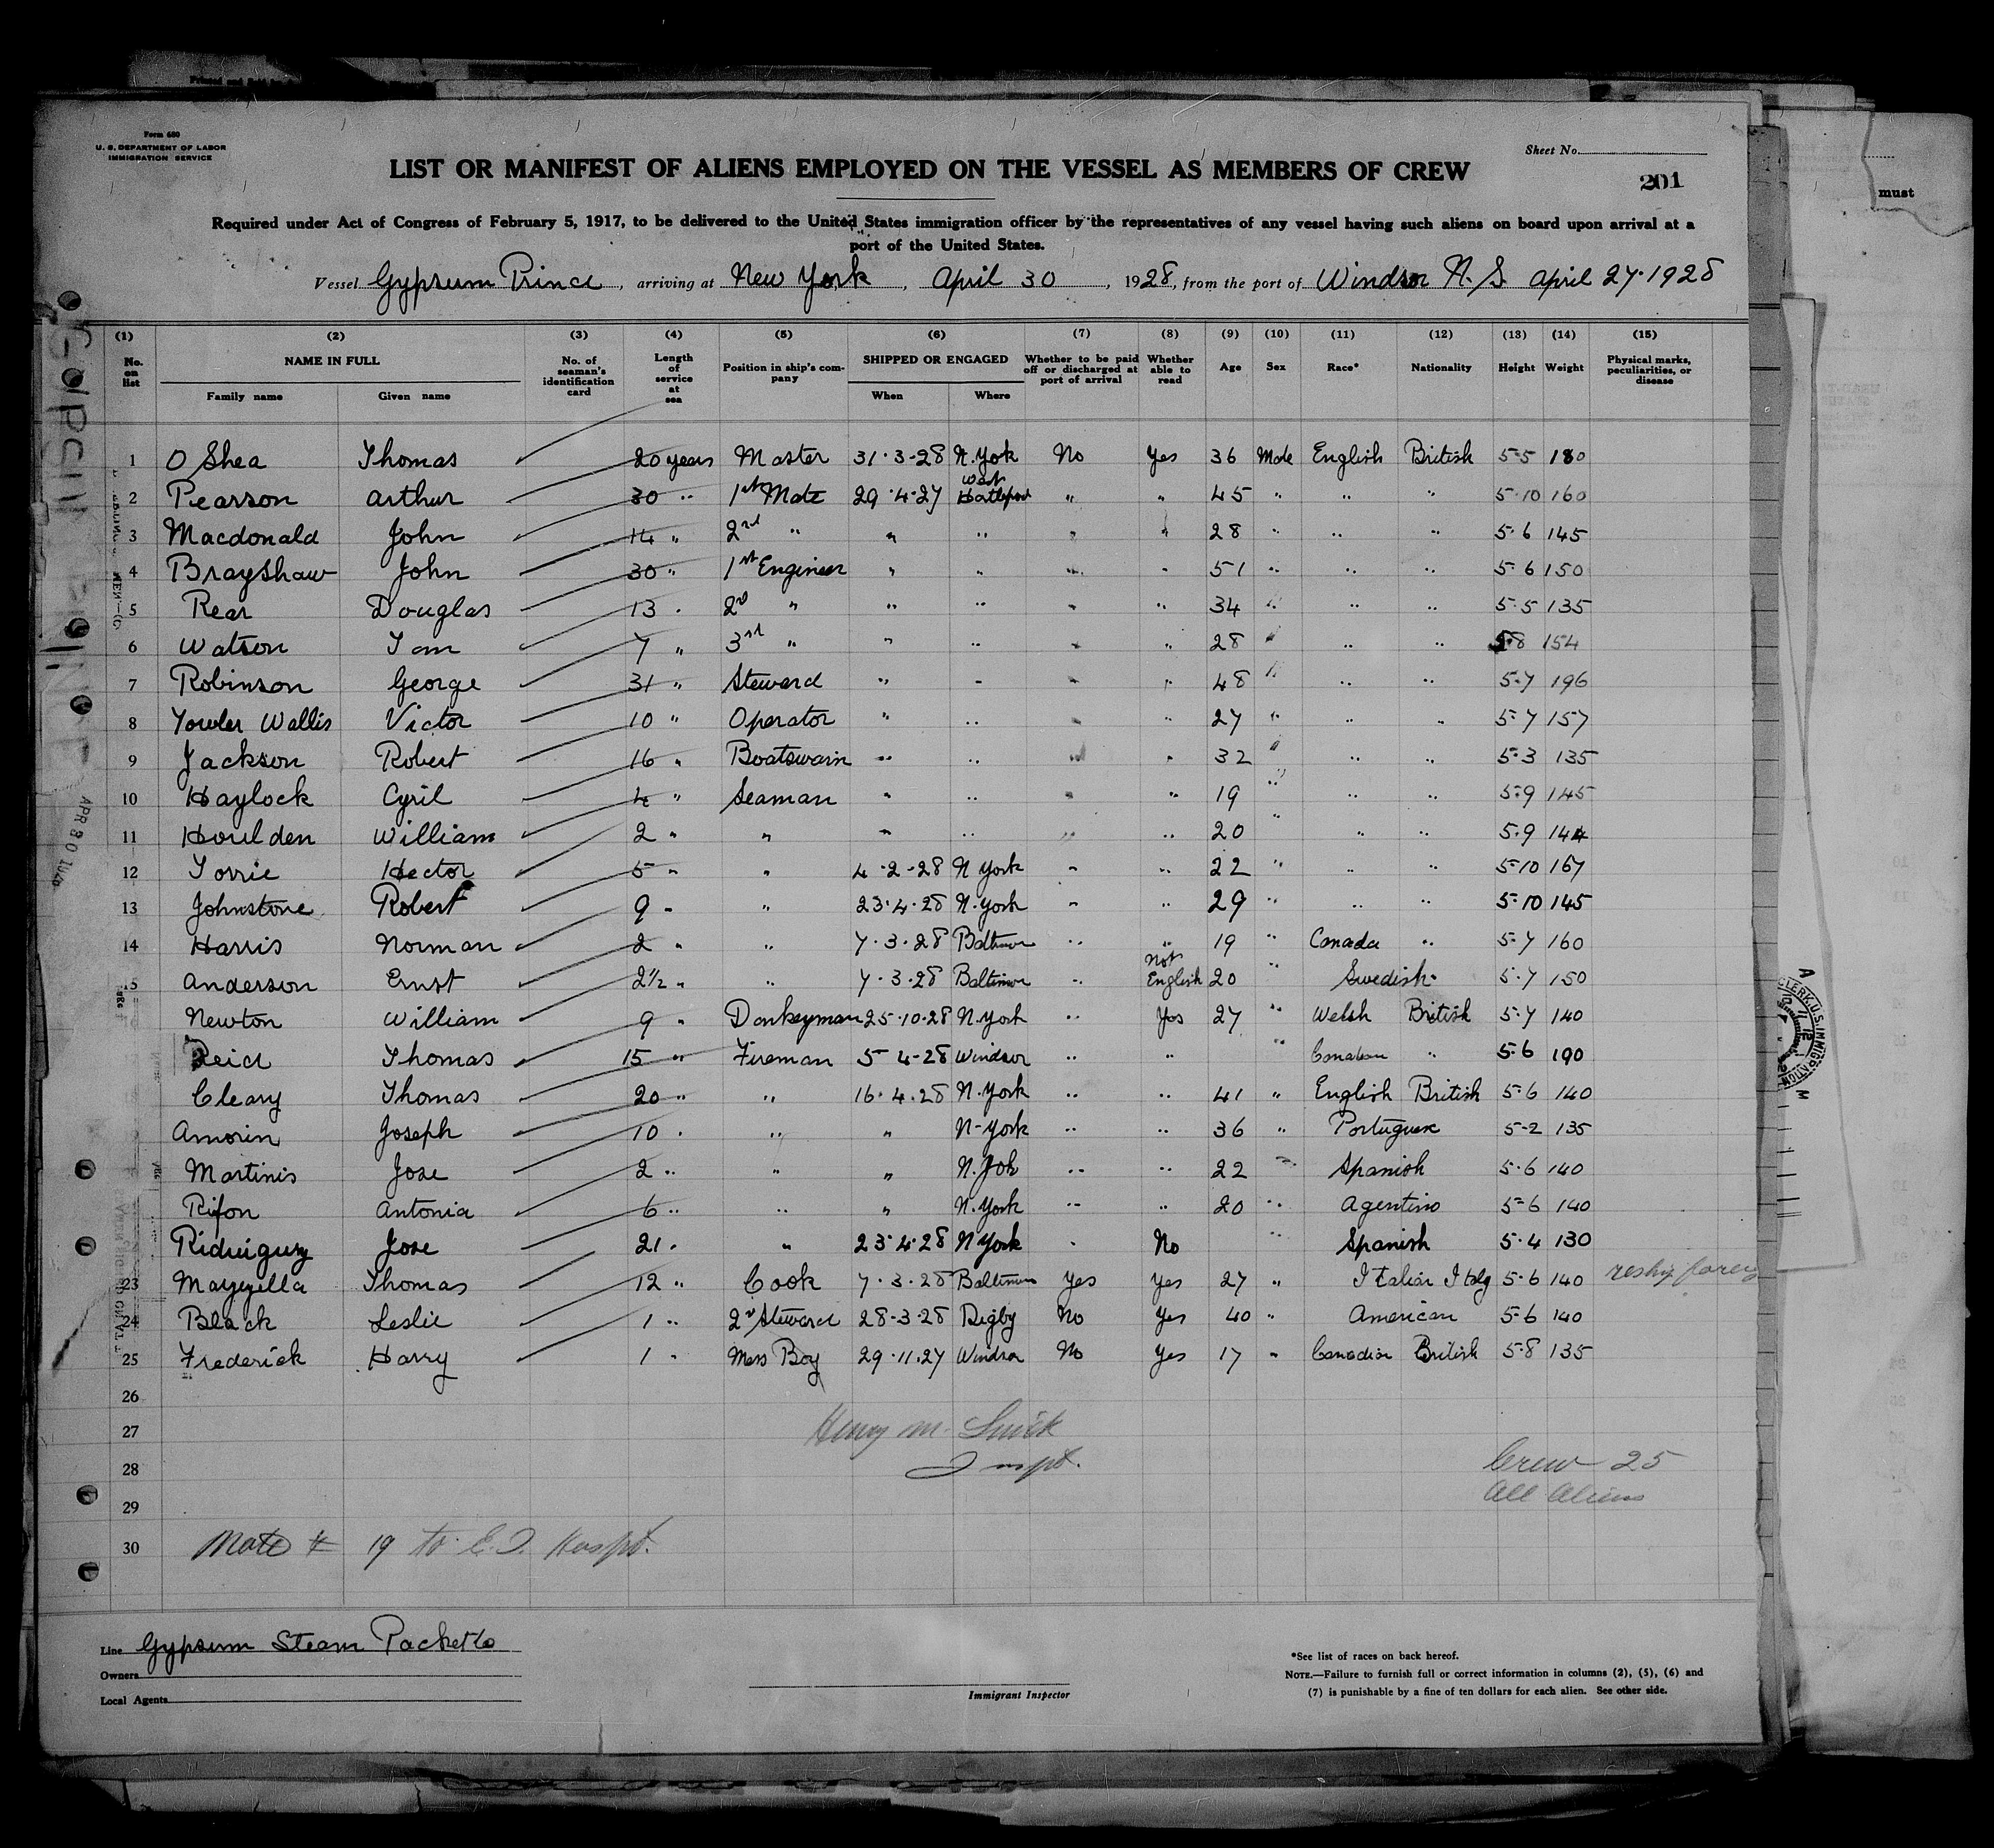 Form 680
U. S. DEPARTMENT OF LABOR
IMMIGRATION SERVICE
Sheet No.
LIST OR MANIFEST OF ALIENS EMPLOYED ON THE VESSEL AS MEMBERS OF CREW
201
must
Required under Act of Congress of February 5, 1917, to be delivered to the United States immigration officer by the representatives of any vessel having such aliens on board upon arrival at a
port of the United States.
Vessel Gypsum Prince, arriving at New York, April 30, 1928, from the port of Windsor N.S. April 27.1928
(1) (2) (3) (4) (5) (6) (7) (8) (9) (10) (11) (12) (13) (14) (15)
No. on list NAME IN FULL Family name Given name No. of seaman's identification card Length of service at sea Position in ship's company SHIPPED OR ENGAGED When Where Whether to be paid off or discharged at port of arrival Whether able to read Age Sex Race* Nationality Height Weight Physical marks, peculiarities, or disease
1 O Shea Thomas 20 years Master 31.3-28 N.Yok No Yes 36 Male English British 5-5 180
2 Pearson Arthur 30 " 1st Mate 29.4.27 West Hartlepool " " 45 " " " 5.10 160
3 Macdonald John 14 " 2nd " " " " " 28 " " " 5.6 145
4 Brayshaw John 30 " 1st Engineer " " " " 51 " " " 5.6 150
5 Rear Douglas 13 " 2d " " " " " 34 " " " 5.5 135
6 Watson Tom 7 " 3rd " " " " " 28 " " " 5.8 154
7 Robinson George 31 " Steward " " " " 48 " " " 5.7 196
8 Yowler Wallis Victor 10 " Operator " " " " 27 " " " 5.7 157
9 Jackson Robert 16 " Boatswain " " " " 32 " " " 5.3 135
10 Haylock Cyril 4 " Seaman " " " " 19 " " " 5.9 145
11 Houlden William 2 " " " " " " 20 " " " 5.9 144
12 Torrie Hector 5 " " 4.2.28 N York " " 22 " " " 5-10 167
13 Johnstone Robert 9 " " 23.4.28 N.York " " 29 " " " 5-10 145
14 Harris Norman 2 " " 7.3.28 " " 19 " Canada " 5.7 160
15 Anderson Ernst 2½ " " 7.3.28 Baltimore " not English 20 " Swedish 5.7 150
Newton William 9 " Donkeyman 25.10.28 N.York " Yes 27 " Welsh British 5.7 140
Reid Thomas 15 " Fireman 5 4-28 Windsor " " " " 5.6 190
Cleary Thomas 20 " " 16.4.28 N.York " " 41 " English British 5-6 140
Amorin Joseph 10 " " " N-York " " 36 " Portuguese 5-2 135
Martinis Jose 2 " " " N.Yok " " 22 " Spanish 5.6 140
Rifon Antonia 6 " " " N.York " " 20 " Agentino 5-6 140
Jose 21 " " 23.4.28 N York " No " Spanish 5.4 130
23 Thomas 12 " Cook 7.3.28 Yes Yes 27 " Italian Italy 5.6 140
24 Black Leslie 1 " 2d Steward 28-3-28 Digby No Yes 40 " American 5.6 140
25 Frederick Harry 1 " Mess Boy 29.11.27 Windsor No Yes 17 " Canadian British 5.8 135
26
27 Henry M.
28 Inspt. Crew 25
29 All Aliens
30 Note # 19 to E.I. Hospt.
APR 30
Line Gypsum Steam Packet Co
Owners
Local Agents
Immigrant Inspector
*See list of races on back hereof.
NOTE.—Failure to furnish full or correct information in columns (2), (5), (6) and
(7) is punishable by a fine of ten dollars for each alien. See other side.